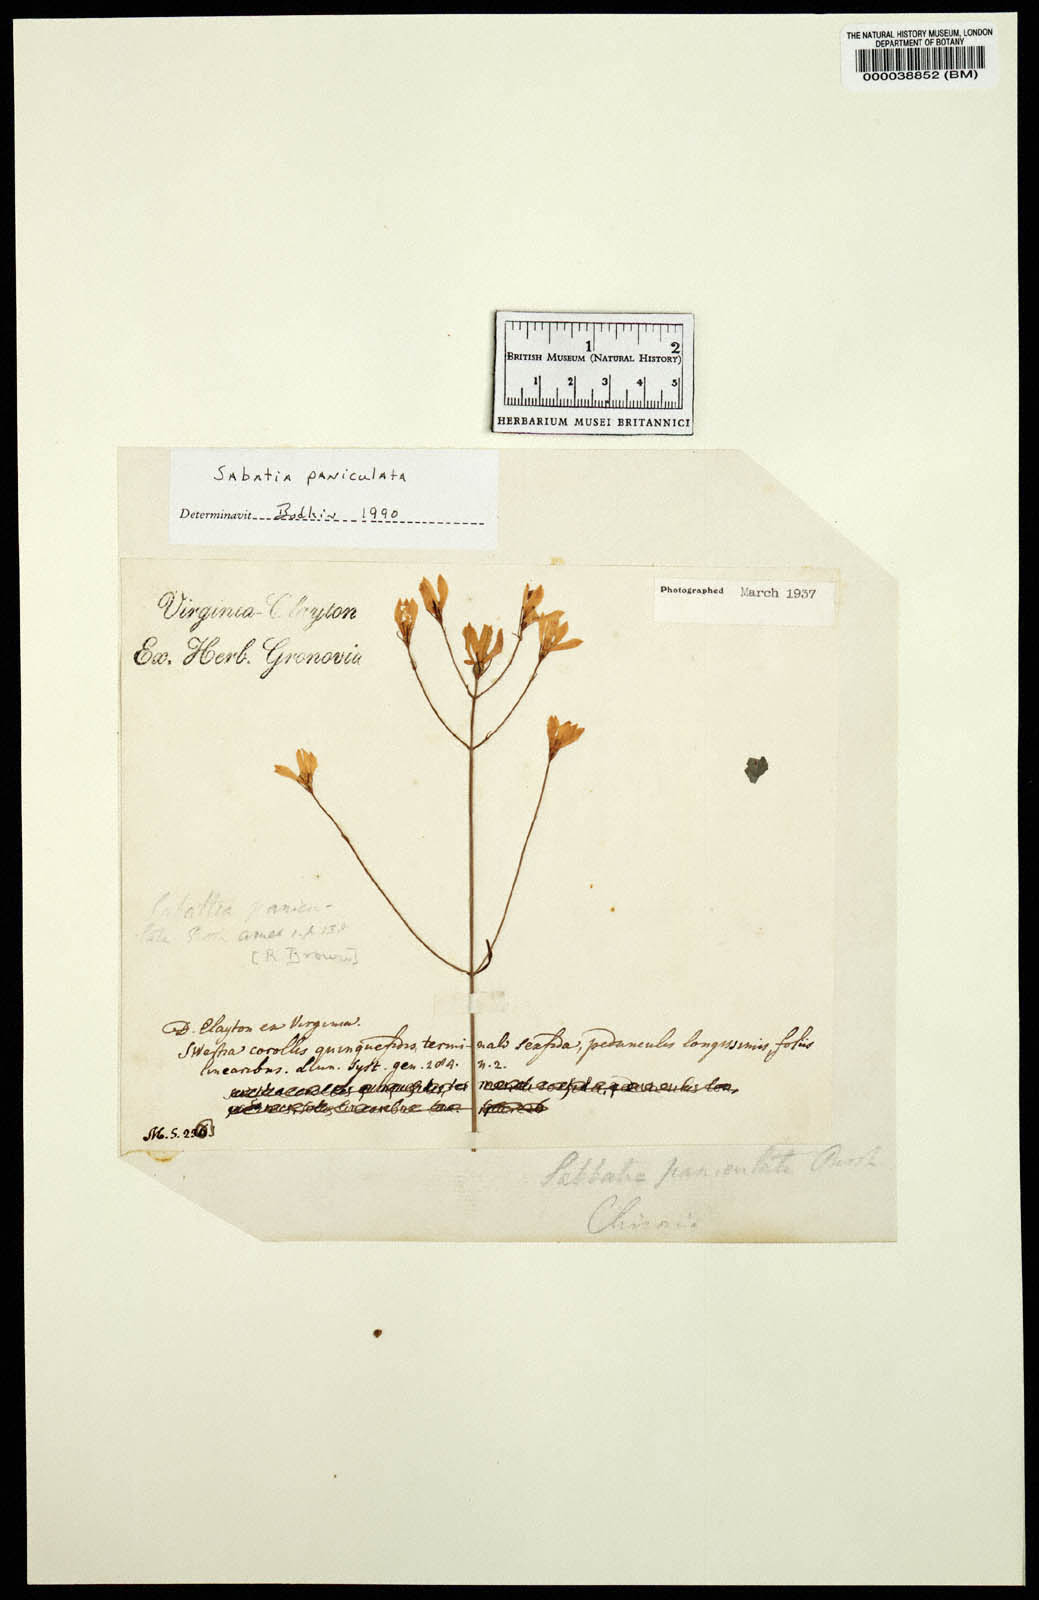 THE NATURAL HISTORY MUSEUM, LONDON
DEPARTMENT OF BOTANY
000038852 (BM)
1 2
BRITISH MUSEUM (NATURAL HISTORY)
1 2 3 4 5
HERBARIUM MUSEI BRITANNICI
Sabatia paniculata
Determinavit Bodkin 1990
Photographed March 1937
Virginia-Clayton
Ex. Herb. Gronovia
Sabattia panicu-
lata
[R Brown]
D. Clayton ex Virginia.
Swertia corollis quinquefidis, terminali sexfida, pedunculis longissimis, foliis
linearibus. Linn. Syst. gen. 284. n. 2.
M.S. 2
Sabbatia paniculata Pursh
Chironia